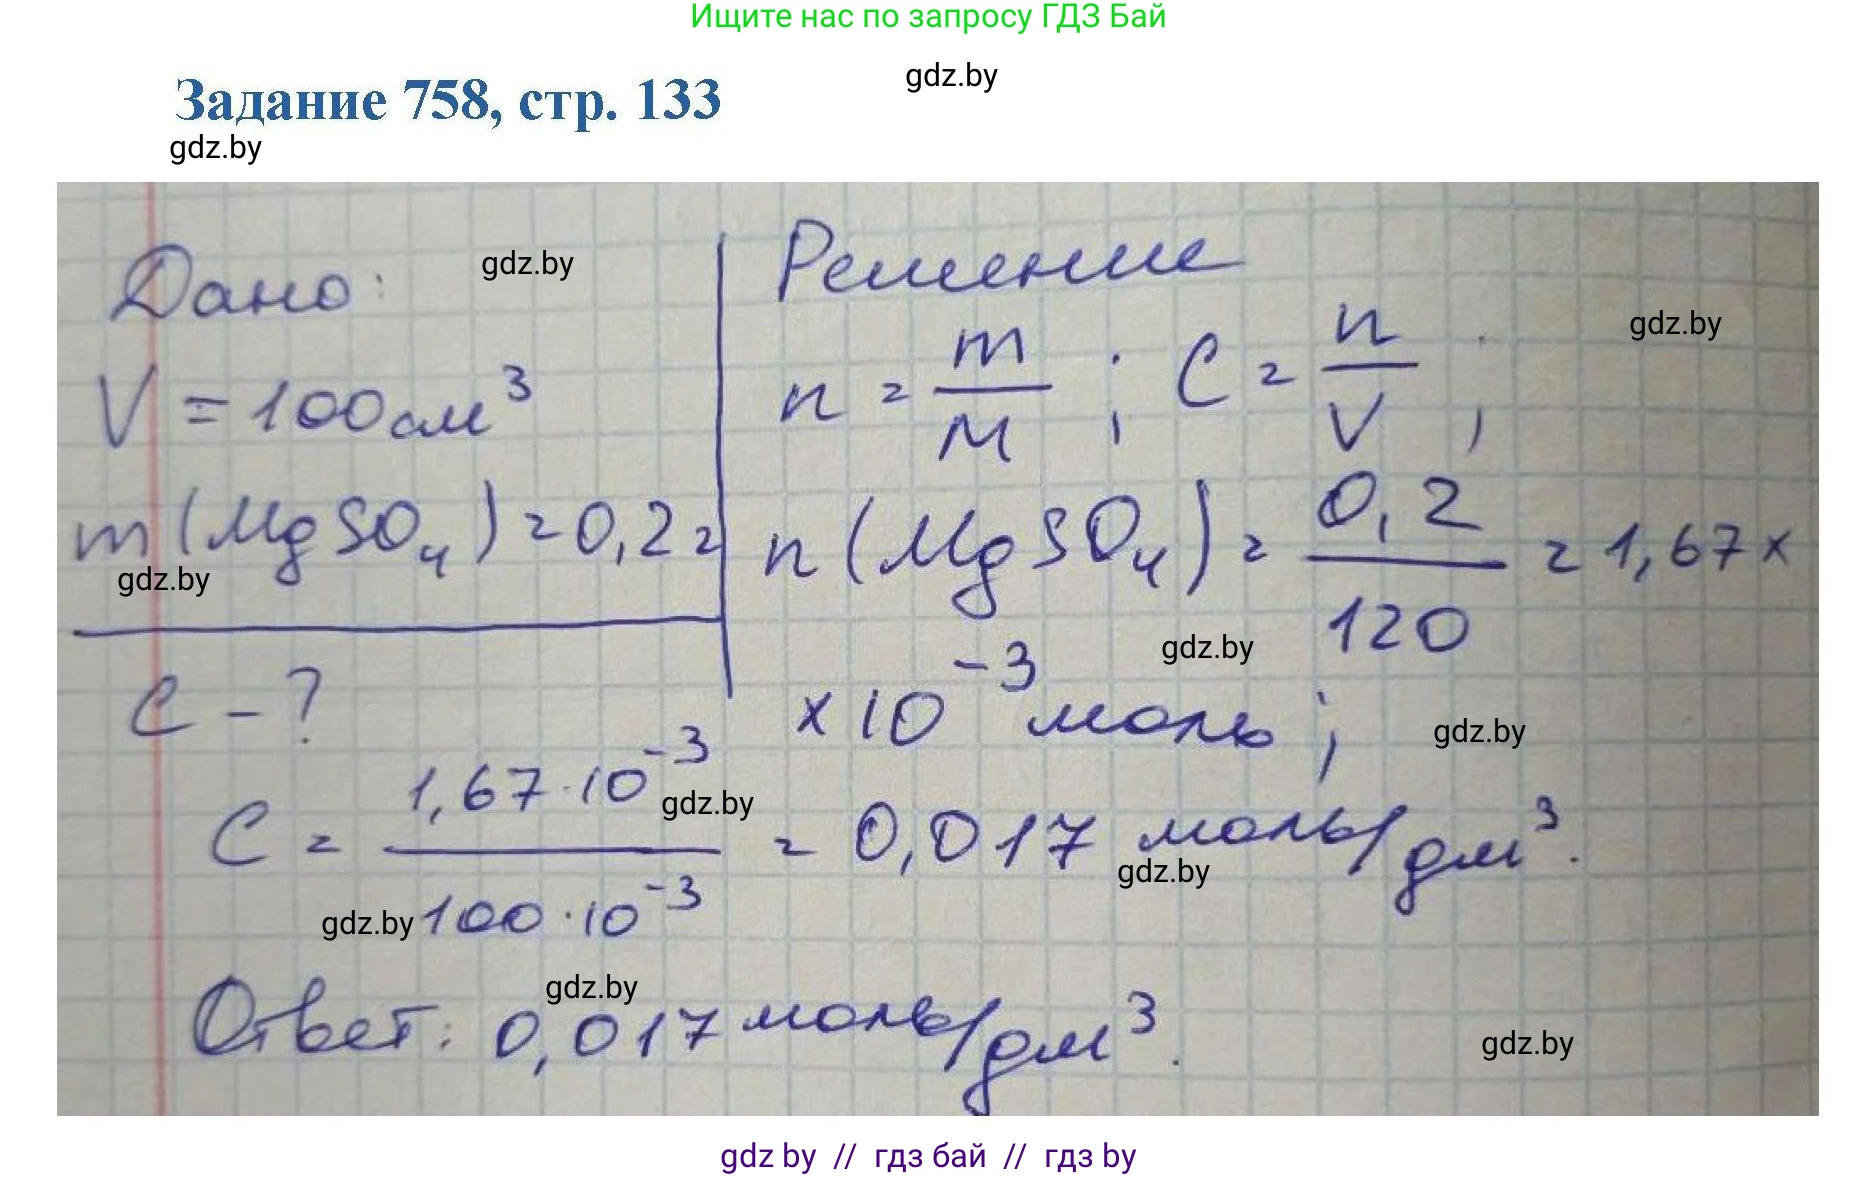 Ищите нас по запросу ГДЗ Бай
gdz.by
Задание 758, стр. 133
gdz.by
Дано:
gdz.by
Решение
V = 100 см³
n = m/M ; C = n/V ;
gdz.by
m(MgSO₄) = 0,2 г
n(MgSO₄) = 0,2/120 = 1,67 ×
gdz.by
× 10⁻³ моль ;
gdz.by
gdz.by
C - ?
C = 1,67 · 10⁻³/100 · 10⁻³ = 0,017 моль/дм³.
gdz.by
gdz.by
gdz.by
gdz.by
Ответ: 0,017 моль/дм³.
gdz.by
gdz by // гдз бай // гдз by